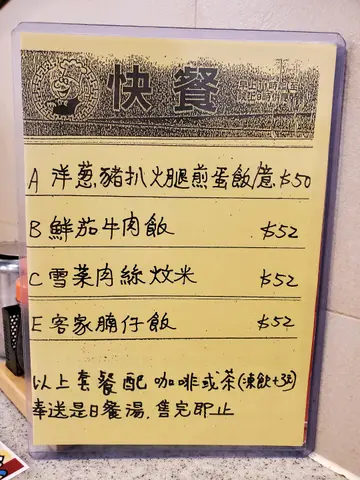 快餐
A 洋蔥豬扒火腿煎蛋飯 $50
B 鮮茄牛肉飯 $52
C 雪菜肉絲炆米 $52
E 客家腩仔飯 $52
以上套餐配咖啡或茶(凍飲+3元)
奉送是日餐湯,售完即止